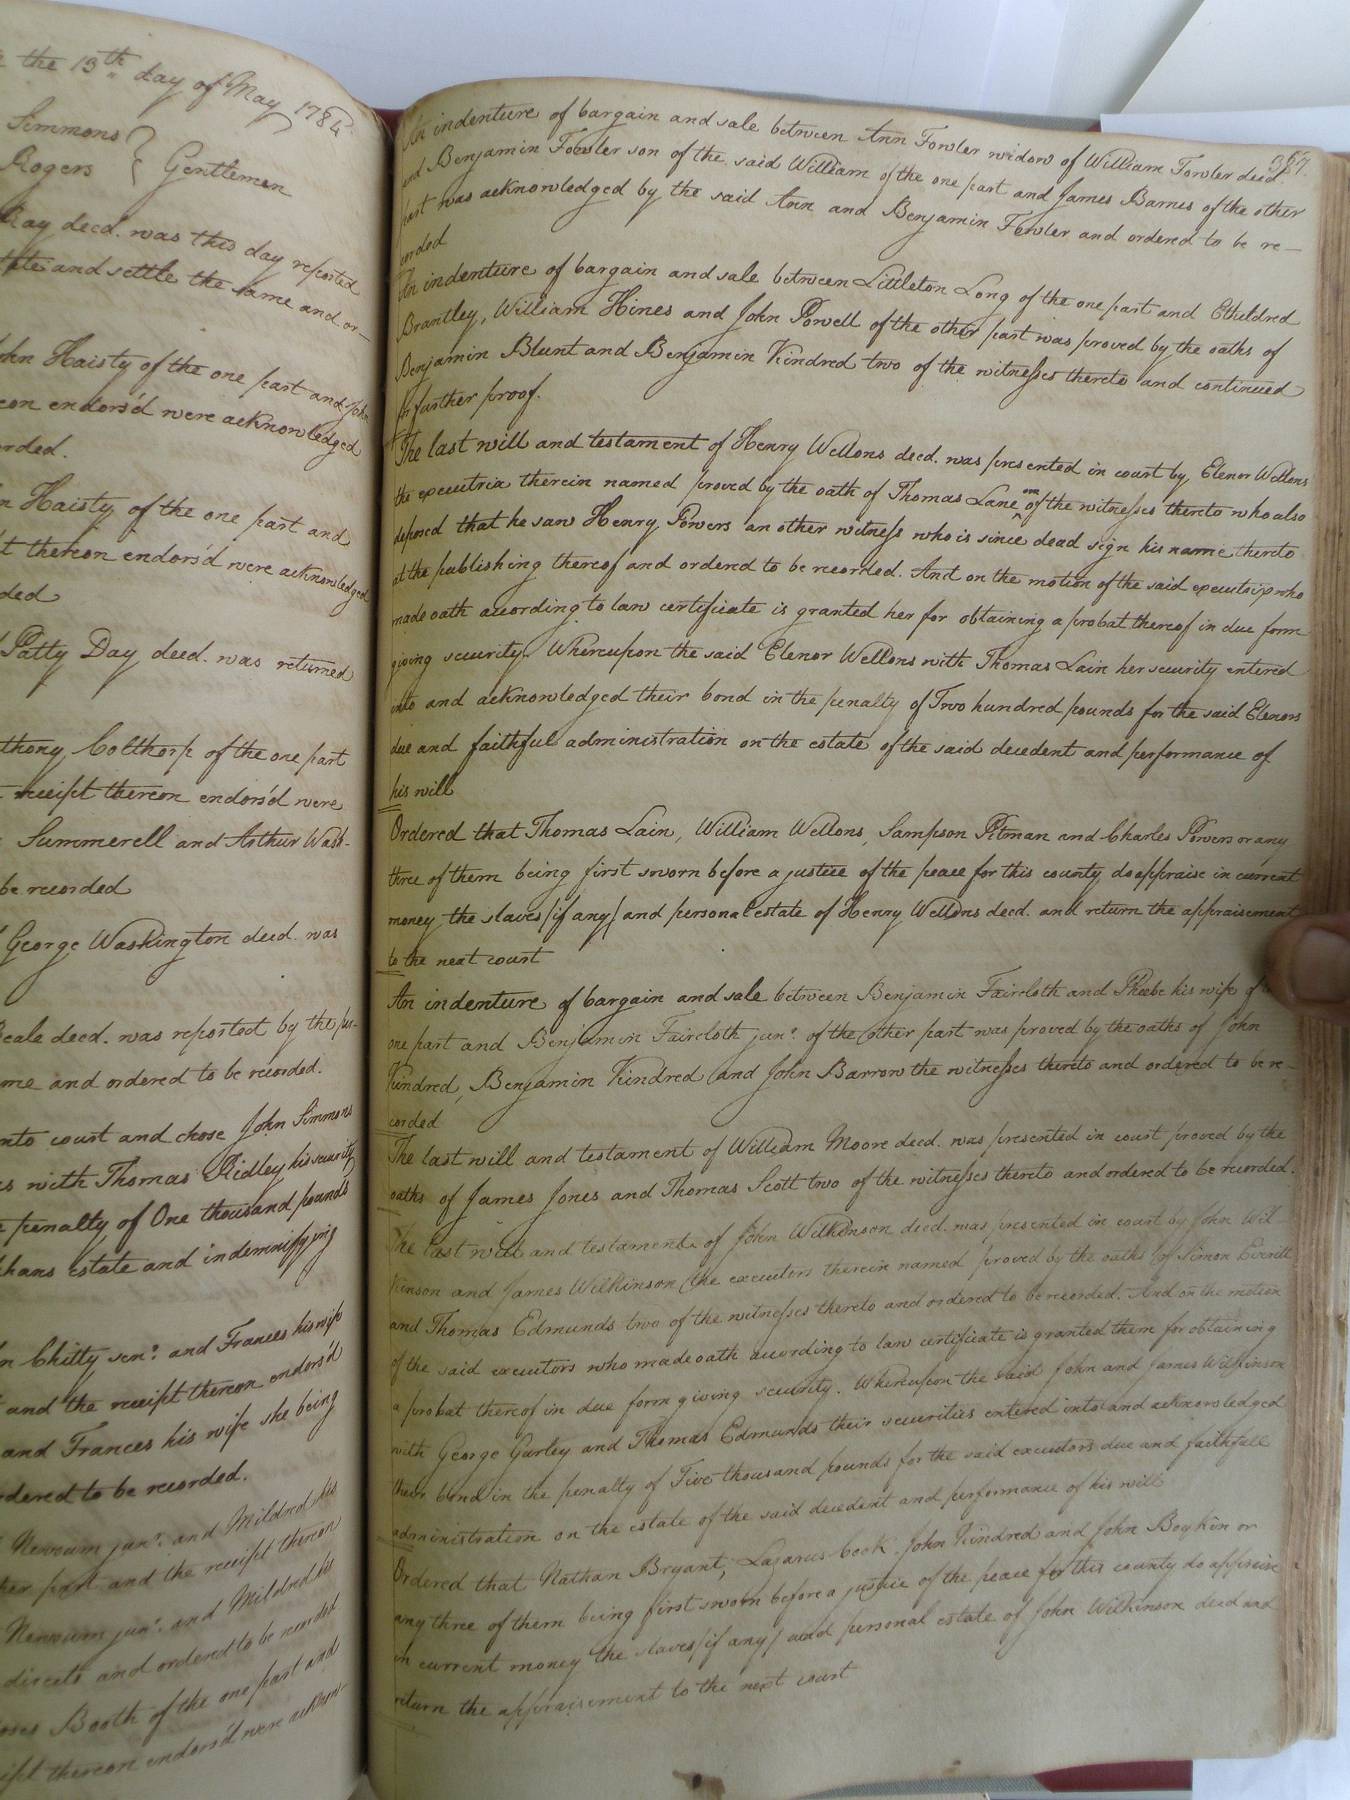 the 13th day of May 1784
Simmons
Rogers } Gentlemen
Ray deced. was this day reported
and settle the same and or-
John Haisty of the one part and John
endors'd were acknowledged
orded.
Haisty of the one part and
thereon endors'd were acknowledged
ded
Patty Day deced. was returned
thony Colthorp of the one part
receipt thereon endors'd were
Summerell and Arthur Wash-
be recorded
George Washington deced. was
Beale deced. was reported by the per-
me and ordered to be recorded.
into court and chose John Simmons
with Thomas Ridley his security
penalty of One thousand pounds
phans estate and indemnifying
Chitty senr. and Frances his wife
and the receipt thereon endors'd
and Frances his wife she being
rdered to be recorded.
Newsum junr. and Mildred his
part and the receipt thereon
Newsum junr. and Mildred his
directs and ordered to be recorded
Booth of the one part and
thereon endors'd were acknow-
357.
An indenture of bargain and sale between Ann Fowler widow of William Fowler deced.
and Benjamin Fowler son of the said William of the one part and James Barnes of the other
part was acknowledged by the said Ann and Benjamin Fowler and ordered to be re-
corded
An indenture of bargain and sale between Littleton Long of the one part and Etheldred
Brantley, William Hines and John Powell of the other part was proved by the oaths of
Benjamin Blunt and Benjamin Kindred two of the witnesses thereto and continued
for further proof.
The last will and testament of Henry Wellons deced. was presented in court by Elenor Wellons
the executrix therein named proved by the oath of Thomas Lane one of the witnesses thereto who also
deposed that he saw Henry Powers an other witness who is since dead sign his name thereto
at the publishing thereof and ordered to be recorded. And on the motion of the said executrix who
made oath according to law certificate is granted her for obtaining a probat thereof in due form
giving security. Whereupon the said Elenor Wellons with Thomas Lain her security entered
into and acknowledged their bond in the penalty of Two hundred pounds for the said Elenors
due and faithful administration on the estate of the said decedent and performance of
his will
Ordered that Thomas Lain, William Wellons, Sampson Pitman and Charles Powers or any
three of them being first sworn before a justice of the peace for this county do appraise in current
money the slaves/if any/ and personal estate of Henry Wellons deced. and return the appraisement
to the next court
An indenture of bargain and sale between Benjamin Faircloth and Phebe his wife of
one part and Benjamin Faircloth junr. of the other part was proved by the oaths of John
Kindred, Benjamin Kindred and John Barrow the witnesses thereto and ordered to be re-
corded
The last will and testament of William Moore deced. was presented in court proved by the
oaths of James Jones and Thomas Scott two of the witnesses thereto and ordered to be recorded.
The last will and testament of John Wilkinson deced. was presented in court by John Wil-
kinson and James Wilkinson the executors therein named proved by the oaths of Simon Everitt
and Thomas Edmunds two of the witnesses thereto and ordered to be recorded. And on the motion
of the said executors who made oath according to law certificate is granted them for obtaining
a probat thereof in due form giving security. Whereupon the said John and James Wilkinson
with George Gurley and Thomas Edmunds their securities entered into and acknowledged
their bond in the penalty of Five thousand pounds for the said executors due and faithfull
administration on the estate of the said decedent and performance of his will
Ordered that Nathan Bryant, Lazarus Cook John Kindred and John Boykin or
any three of them being first sworn before a justice of the peace for this county do appraise
in current money the slaves/if any/ and personal estate of John Wilkinson deced and
return the appraisement to the next court